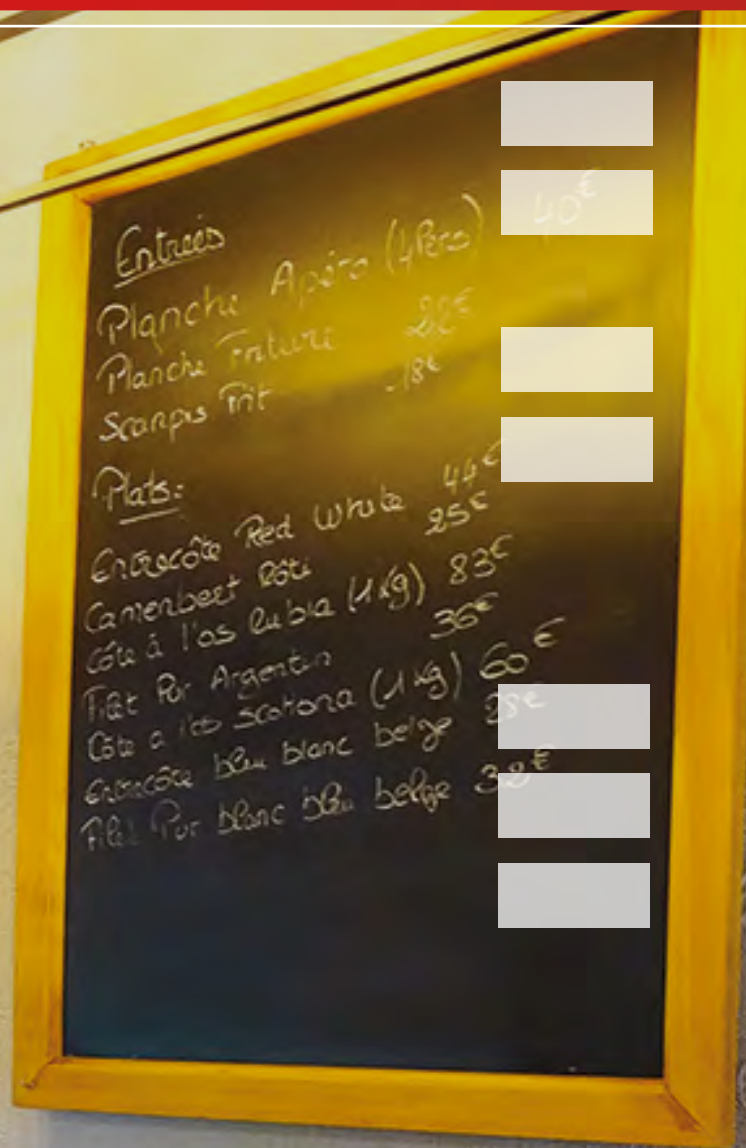 Entrées
Planche Apéro (4Pers) 40€
Planche Friture 22€
Scampis Frit 18€
Plats:
Entrecôte Red White 44€
Camembert Rôti 25€
Côte à l'os Rubia (1Kg) 83€
Filet Pur Argentin 36€
Côte a l'os Scottona (1Kg) 60€
Entrecôte bleu blanc belge 28€
Filet Pur blanc bleu belge 32€